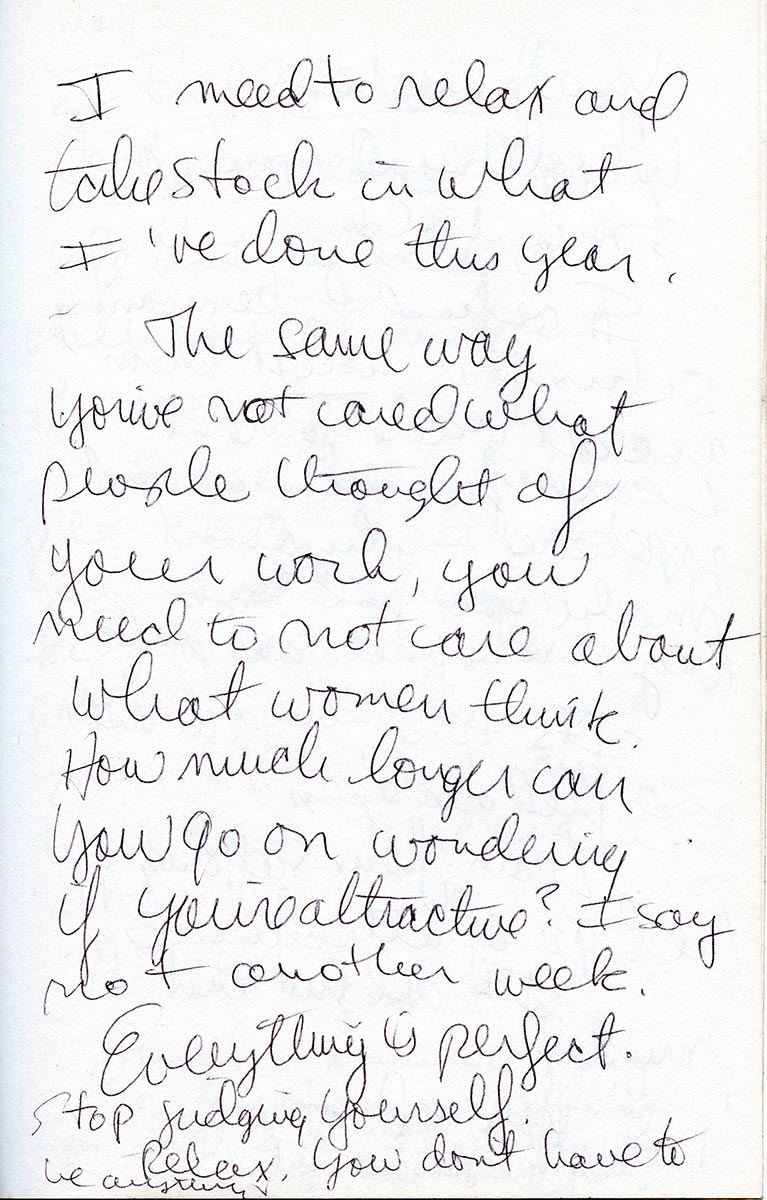 I need to relax and
take stock in what
I've done this year.
The same way
you've not cared what
people thought of
your work, you
need to not care about
what women think.
How much longer can
you go on wondering
if you're attractive? I say
not another week.
Everything is perfect.
Stop judging yourself.
Relax. You don't have to
be anything